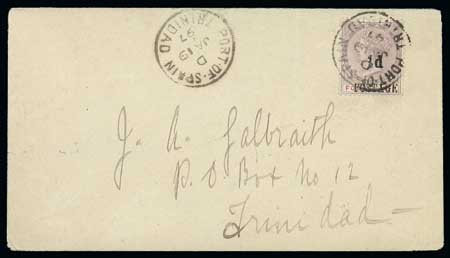 PORT-OF-SPAIN
D
JA 19
97
TRINIDAD
PORT-OF-SPAIN
TRINIDAD
d
POSTAGE
J. A. Galbraith
P.O Box No 12
Trinidad